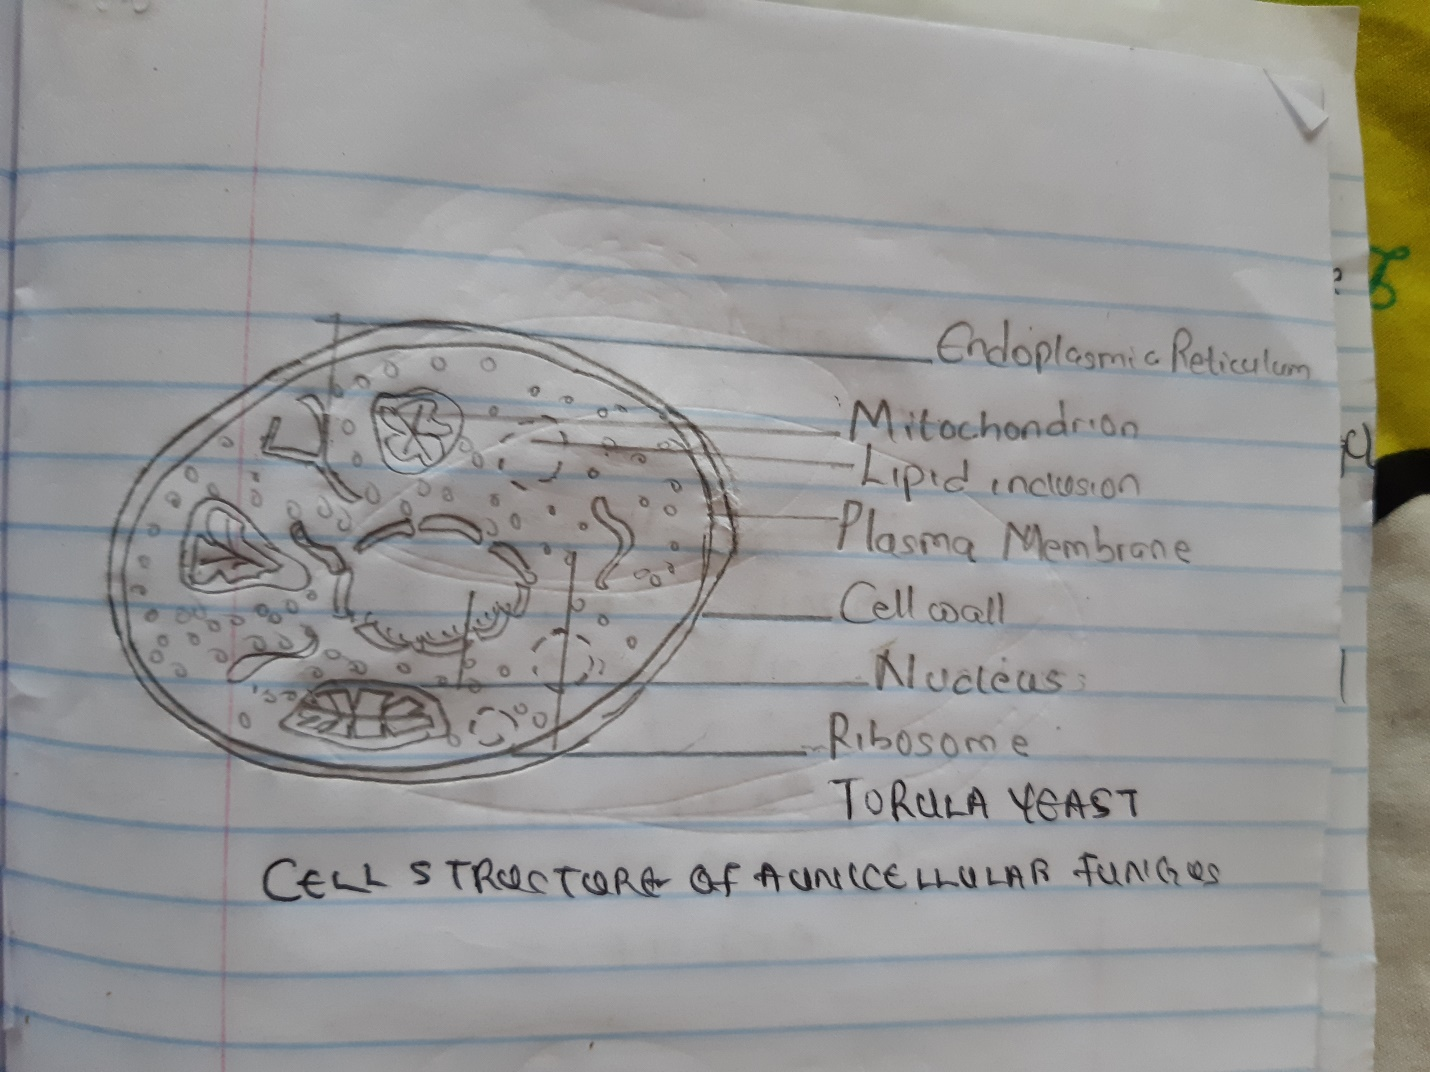 Endoplasmic Reticulum
Mitochondrion
Lipid inclusion
Plasma Membrane
Cell wall
Nucleus
Ribosome
TORULA YEAST
CELL STRUCTURE OF A UNICELLULAR FUNGUS